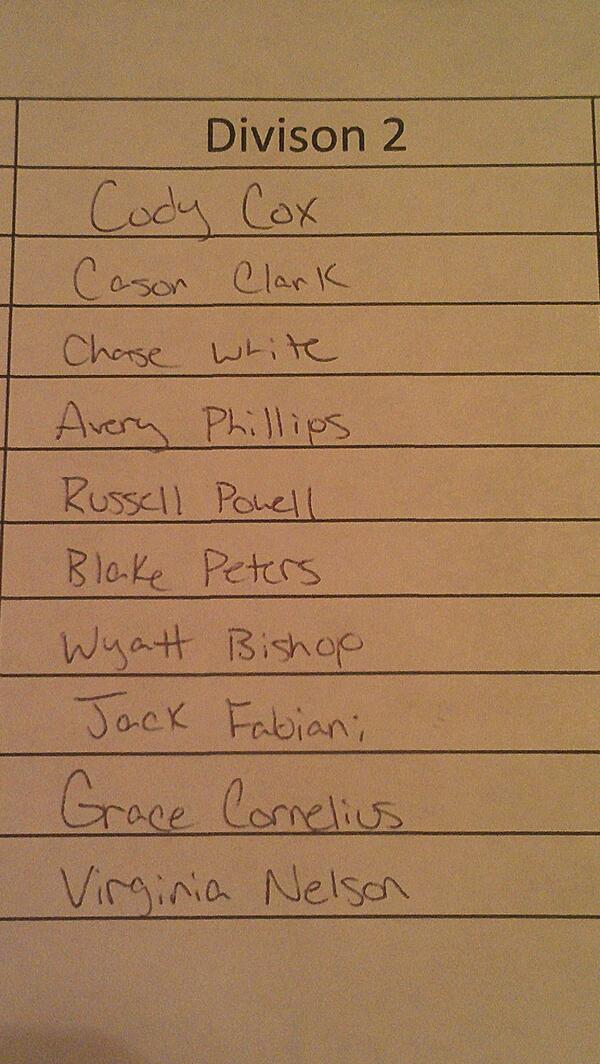 Divison 2
Cody Cox
Cason Clark
Chase White
Avery Phillips
Russell Powell
Blake Peters
Wyatt Bishop
Jack Fabiani
Grace Cornelius
Virginia Nelson